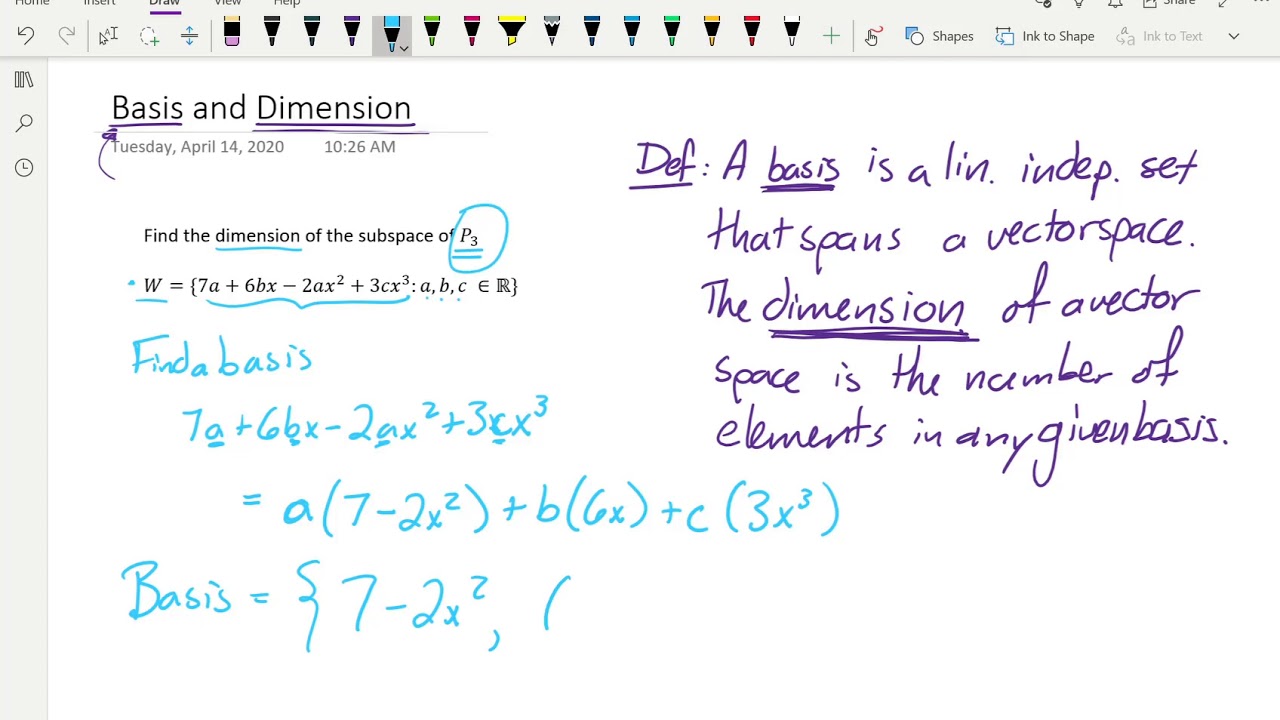 Home Insert Draw View Help
Share
Shapes Ink to Shape Ink to Text
Basis and Dimension
Tuesday, April 14, 2020 10:26 AM
Find the dimension of the subspace of P₃
W = {7a + 6bx − 2ax² + 3cx³: a, b, c ∈ ℝ}
Find a basis
7a+6bx−2ax²+3cx³
= a(7−2x²)+b(6x)+c(3x³)
Basis = { 7−2x², (
Def: A basis is a lin. indep. set
that spans a vectorspace.
The dimension of a vector
space is the number of
elements in any given basis.